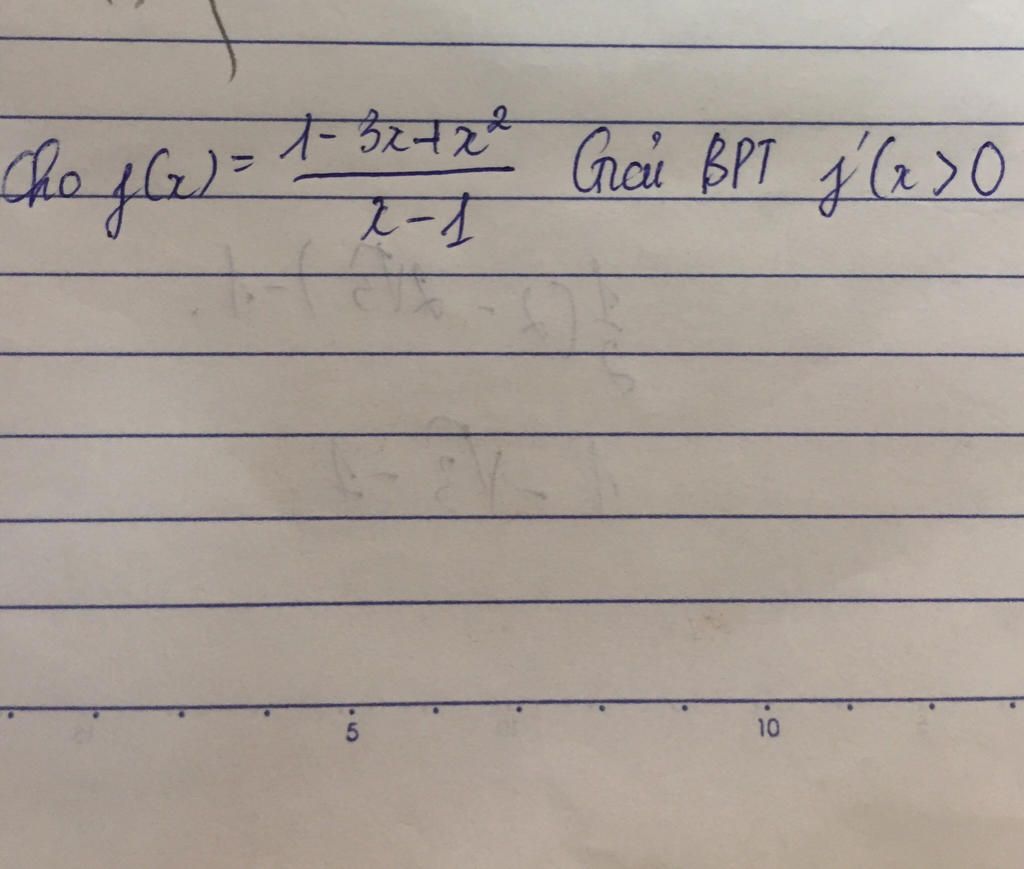 Cho f(x) = \frac{1 - 3x + x^2}{x - 1} Giải BPT f'(x > 0
5 10